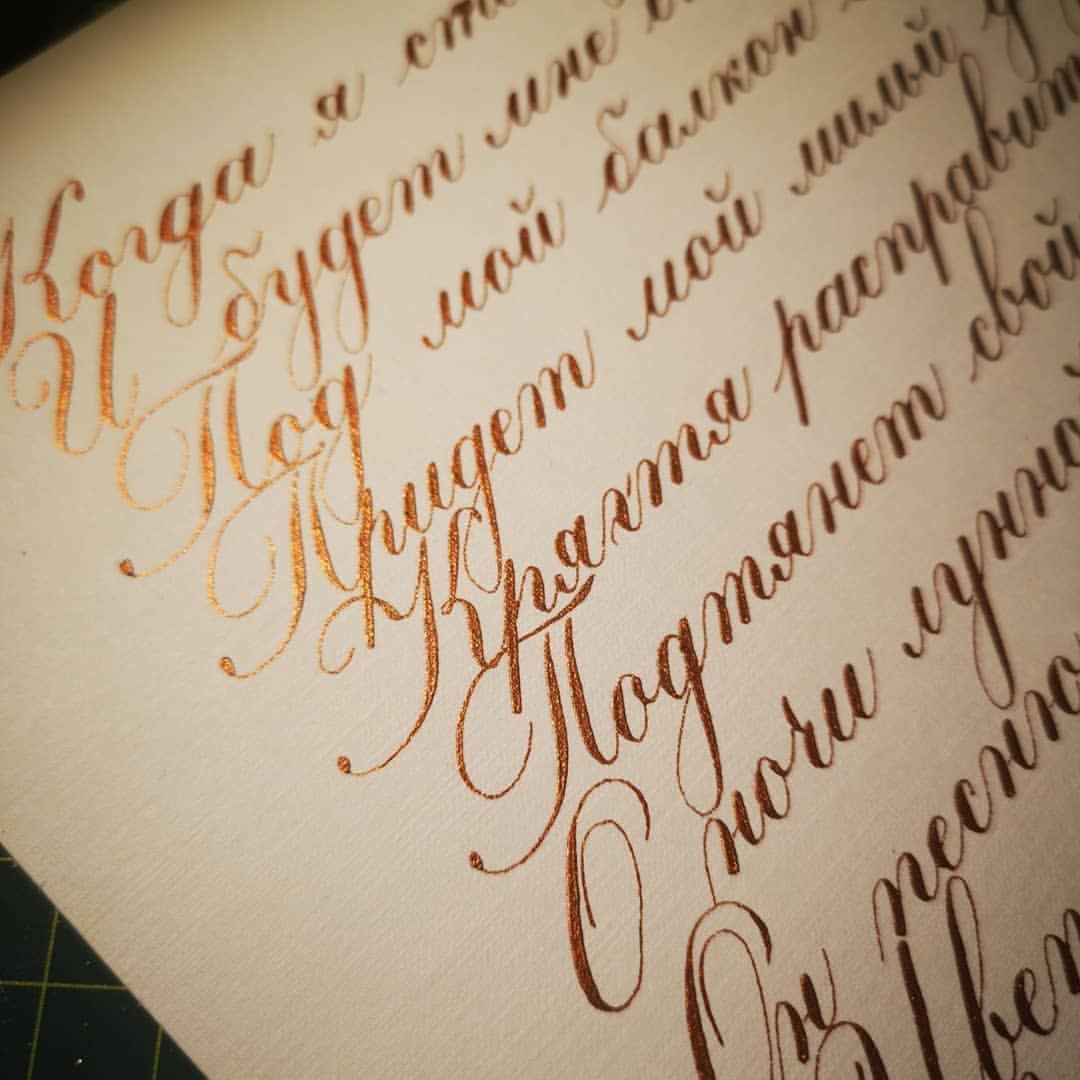 Когда я
И будет мне
Под мой балкон
Придет мой милый
Кряхтя расправит
Подтянет свой
О ночи лунной
Он песню